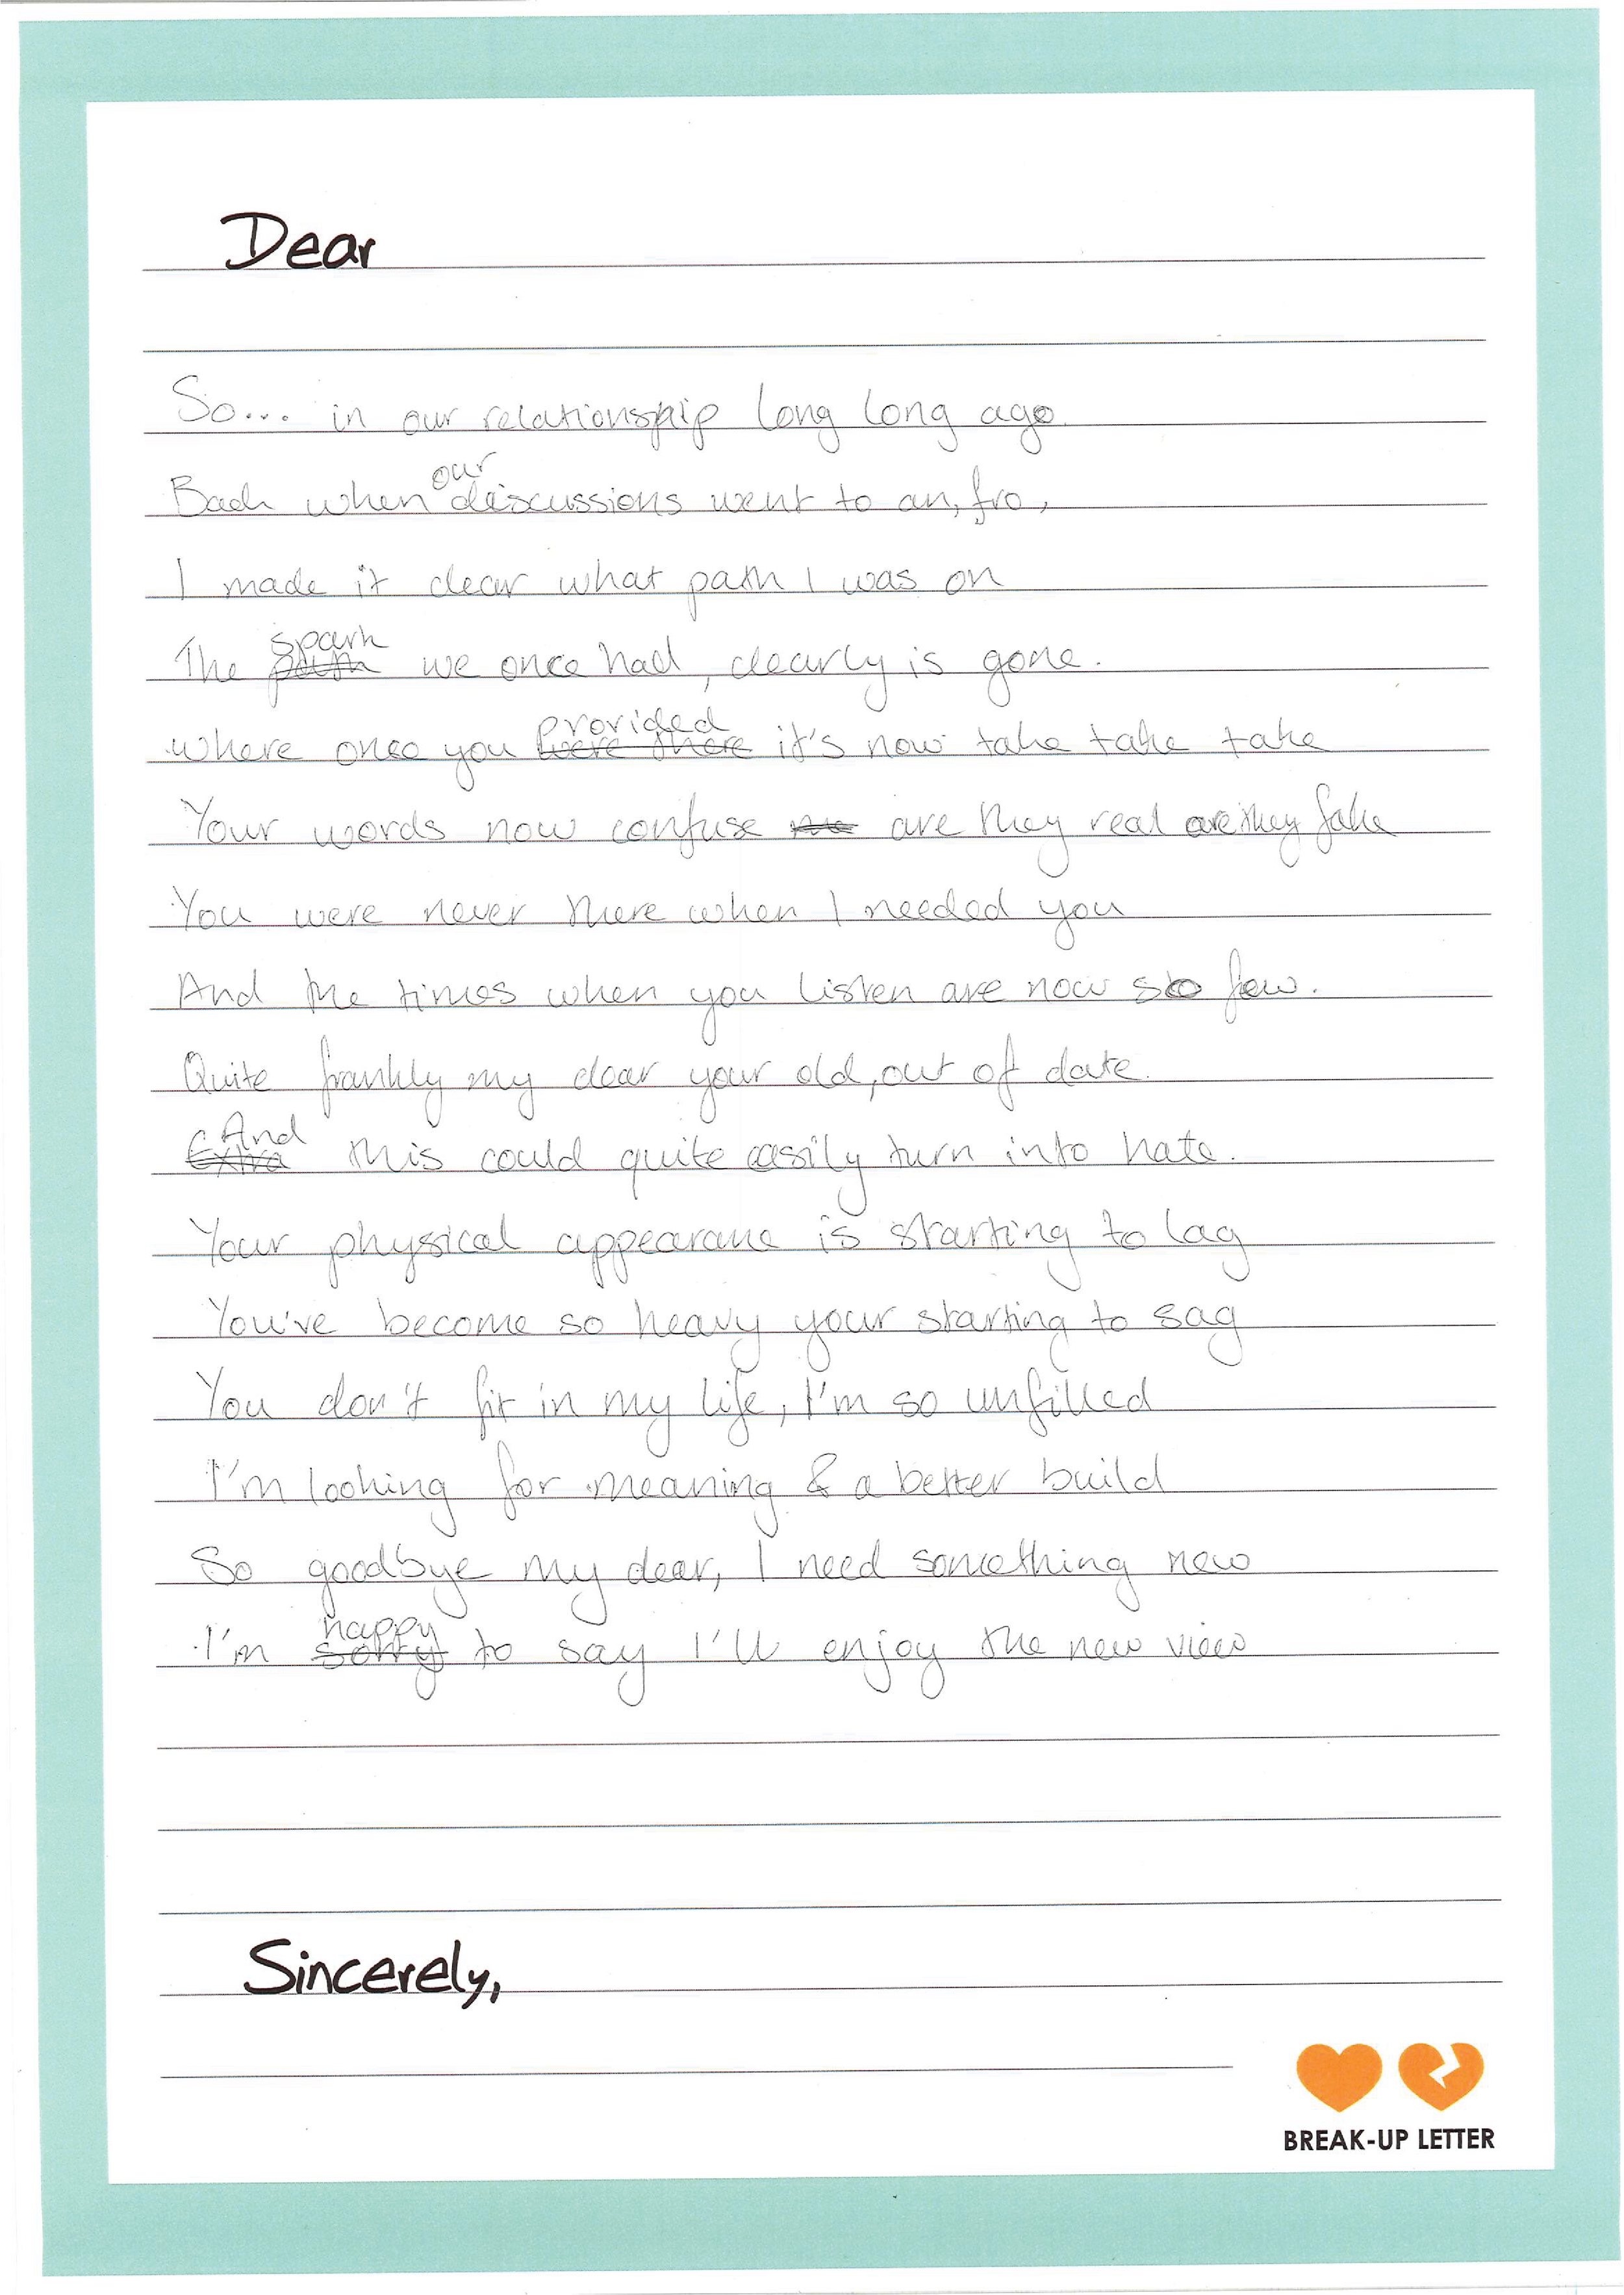 Dear
So... in our relationship long long ago.
Back when our discussions went to an, fro,
I made it clear what path I was on
The ~~path~~ spark we once had, clearly is gone.
where once you ~~were there~~ provided it's now take take take
Your words now confuse ~~me~~ are they real are they fake
You were never there when I needed you
And the times when you listen are now so few.
Quite frankly my dear your old, out of date.
~~Extra~~ And this could quite easily turn into hate.
Your physical appearance is starting to lag
You've become so heavy your starting to sag
You don't fit in my life, I'm so unfilled
I'm looking for meaning & a better build
So goodbye my dear, I need something new
I'm ~~sorry~~ happy to say I'll enjoy the new view
Sincerely,
BREAK-UP LETTER